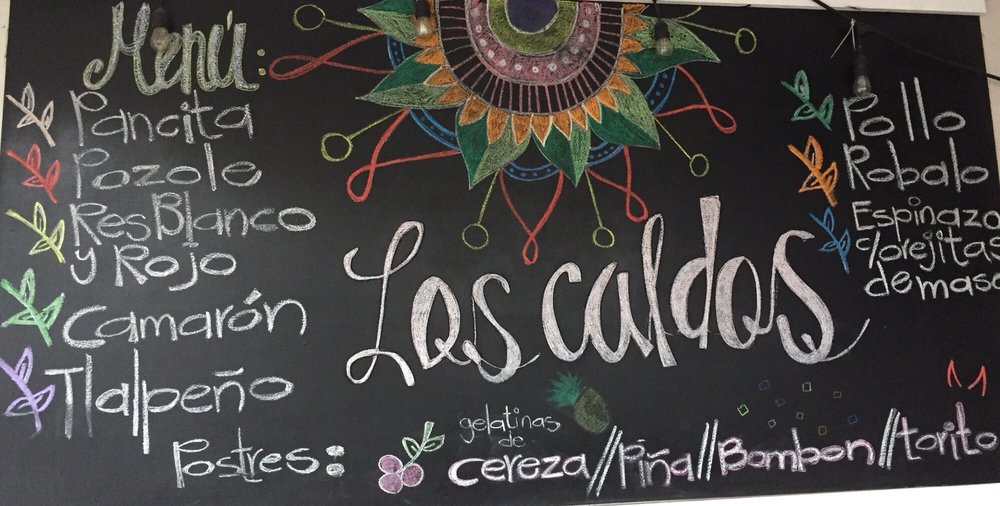 Menú:
Pancita
Pozole
Res Blanco
y Rojo
Camarón
Tlalpeño
Los caldos
Pollo
Robalo
Espinazo
c/orejitas
de masa
Postres:
gelatinas
de
cereza//Piña//Bombon//torito